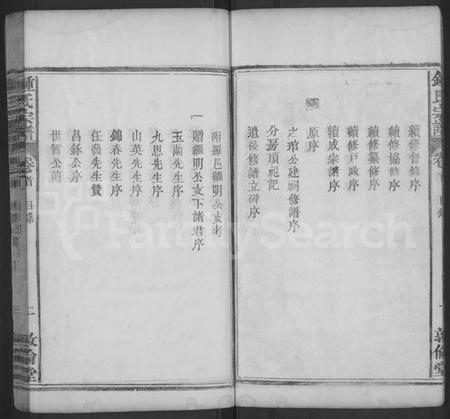 鍾氏宗譜
卷首
目錄
敦倫堂
續修督修序
續修協修序
續修纂修序
續修戶政序
續成宗譜序
原序
之琯公建祠修譜序
分房項祀記
道後修譜立碑序
附縣邑繩明公支考
一贈繩明公支下諸君序
玉蘭先生序
九思先生序
山英先生序
錦春先生序
任發先生贊
昌鉌公序
世智公傳
鍾氏宗譜
卷首
目錄
二
敦倫堂
FamilySearch